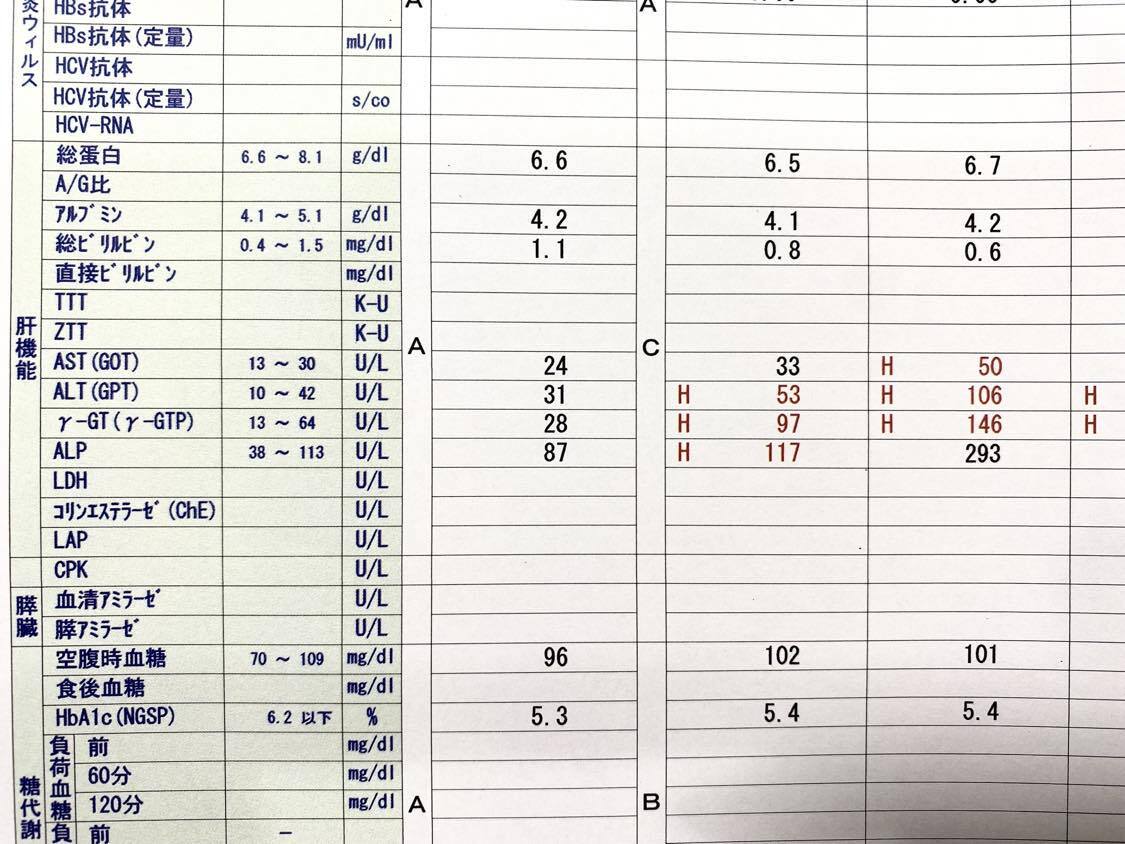 炎ウィルス
HBs抗体 A A
HBs抗体(定量) mU/ml
HCV抗体
HCV抗体(定量) s/co
HCV-RNA
肝機能
総蛋白 6.6 ～ 8.1 g/dl 6.6 6.5 6.7
A/G比
ｱﾙﾌﾞﾐﾝ 4.1 ～ 5.1 g/dl 4.2 4.1 4.2
総ﾋﾞﾘﾙﾋﾞﾝ 0.4 ～ 1.5 mg/dl 1.1 0.8 0.6
直接ﾋﾞﾘﾙﾋﾞﾝ mg/dl
TTT K-U
ZTT K-U
A C
AST(GOT) 13 ～ 30 U/L 24 33 H 50
ALT(GPT) 10 ～ 42 U/L 31 H 53 H 106 H
γ-GT(γ-GTP) 13 ～ 64 U/L 28 H 97 H 146 H
ALP 38 ～ 113 U/L 87 H 117 293
LDH U/L
ｺﾘﾝｴｽﾃﾗｰｾﾞ(ChE) U/L
LAP U/L
CPK U/L
膵臓
血清ｱﾐﾗｰｾﾞ U/L
膵ｱﾐﾗｰｾﾞ U/L
糖代謝
空腹時血糖 70 ～ 109 mg/dl 96 102 101
食後血糖 mg/dl
HbA1c(NGSP) 6.2 以下 % 5.3 5.4 5.4
負荷血糖
前 mg/dl
60分 mg/dl
120分 mg/dl A B
負 前 －